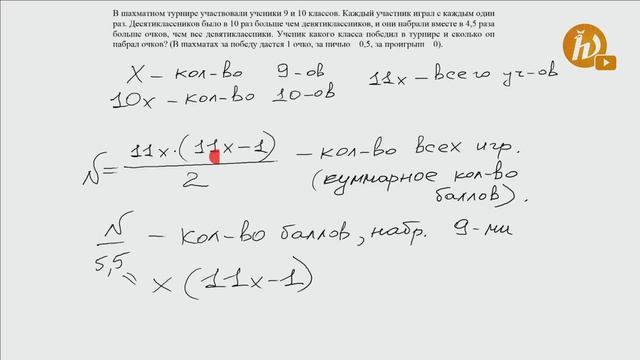 В шахматном турнире участвовали ученики 9 и 10 классов. Каждый участник играл с каждым один
раз. Десятиклассников было в 10 раз больше чем девятиклассников, и они набрали вместе в 4,5 раза
больше очков, чем все девятиклассники. Ученик какого класса победил в турнире и сколько он
набрал очков? (В шахматах за победу дается 1 очко, за ничью 0,5, за проигрыш 0).
X – кол-во 9-ов 11x – всего уч-ов
10x – кол-во 10-ов
N = 11x·(11x-1) / 2 – кол-во всех игр.
(суммарное кол-во
баллов).
N / 5,5 – кол-во баллов, набр. 9-ми
= x(11x-1)